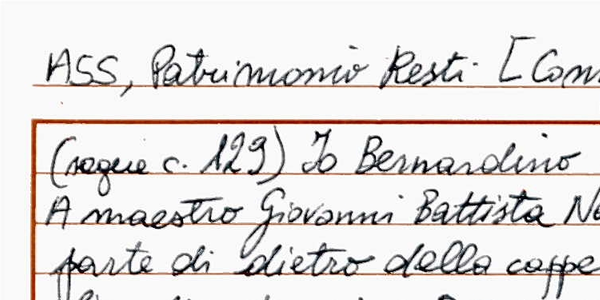 ASS, Patrimonio Resti [Con
(segue c. 129) Io Bernardino
A maestro Giovanni Battista Ne
parte di dietro della cappe